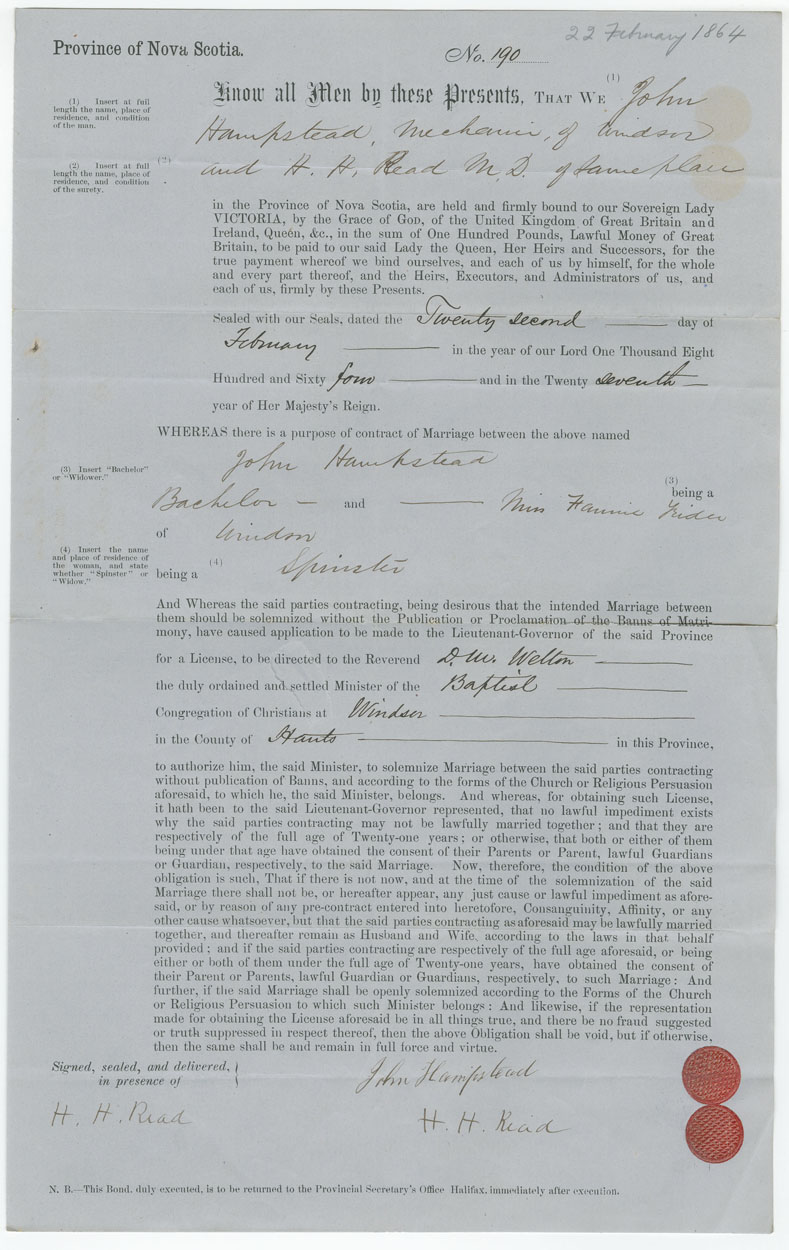 22 February 1864
Province of Nova Scotia.
No. 190
(1) Insert at full
length the name, place of
residence, and condition
of the man.
Know all Men by these Presents, THAT WE (1) John
Hampstead, Mechanic, of Windsor
(2) Insert at full
length the name, place of
residence, and condition
of the surety.
(2) and H. H. Read M.D. of same place
in the Province of Nova Scotia, are held and firmly bound to our Sovereign Lady
VICTORIA, by the Grace of GOD, of the United Kingdom of Great Britain and
Ireland, Queen, &c., in the sum of One Hundred Pounds, Lawful Money of Great
Britain, to be paid to our said Lady the Queen, Her Heirs and Successors, for the
true payment whereof we bind ourselves, and each of us by himself, for the whole
and every part thereof, and the Heirs, Executors, and Administrators of us, and
each of us, firmly by these Presents.
Sealed with our Seals, dated the Twenty second day of
February in the year of our Lord One Thousand Eight
Hundred and Sixty four and in the Twenty seventh
year of Her Majesty's Reign.
WHEREAS there is a purpose of contract of Marriage between the above named
John Hampstead
(3) Insert "Bachelor"
or "Widower."
(3)
being a
Bachelor and Miss Fannie
of Windsor
(4) Insert the name
and place of residence of
the woman, and state
whether "Spinster" or
"Widow."
being a (4) Spinster
And Whereas the said parties contracting, being desirous that the intended Marriage between
them should be solemnized without the Publication or Proclamation of the Banns of Matri-
mony, have caused application to be made to the Lieutenant-Governor of the said Province
for a License, to be directed to the Reverend D. M. Welton
the duly ordained and settled Minister of the Baptist
Congregation of Christians at Windsor
in the County of Hants in this Province,
to authorize him, the said Minister, to solemnize Marriage between the said parties contracting
without publication of Banns, and according to the forms of the Church or Religious Persuasion
aforesaid, to which he, the said Minister, belongs. And whereas, for obtaining such License,
it hath been to the said Lieutenant-Governor represented, that no lawful impediment exists
why the said parties contracting may not be lawfully married together; and that they are
respectively of the full age of Twenty-one years; or otherwise, that both or either of them
being under that age have obtained the consent of their Parents or Parent, lawful Guardians
or Guardian, respectively, to the said Marriage. Now, therefore, the condition of the above
obligation is such, That if there is not now, and at the time of the solemnization of the said
Marriage there shall not be, or hereafter appear, any just cause or lawful impediment as afore-
said, or by reason of any pre-contract entered into heretofore, Consanguinity, Affinity, or any
other cause whatsoever, but that the said parties contracting as aforesaid may be lawfully married
together, and thereafter remain as Husband and Wife, according to the laws in that behalf
provided; and if the said parties contracting are respectively of the full age aforesaid, or being
either or both of them under the full age of Twenty-one years, have obtained the consent of
their Parent or Parents, lawful Guardian or Guardians, respectively, to such Marriage: And
further, if the said Marriage shall be openly solemnized according to the Forms of the Church
or Religious Persuasion to which such Minister belongs: And likewise, if the representation
made for obtaining the License aforesaid be in all things true, and there be no fraud suggested
or truth suppressed in respect thereof, then the above Obligation shall be void, but if otherwise,
then the same shall be and remain in full force and virtue.
Signed, sealed, and delivered,
in presence of
John Hampstead
H. H. Read
H. H. Read
N. B.—This Bond, duly executed, is to be returned to the Provincial Secretary's Office Halifax, immediately after execution.